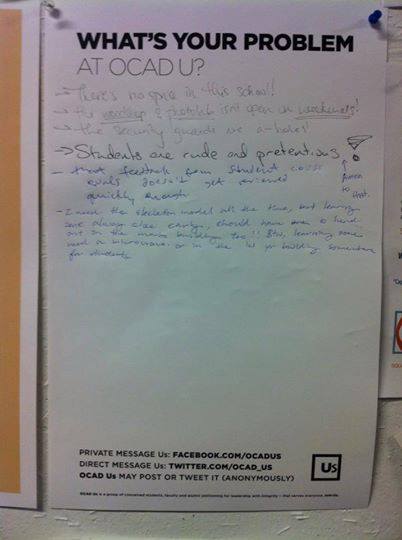 WHAT'S YOUR PROBLEM
AT OCAD U?
→ There's no spice in this school!
→ the woodshop & photolab isn't open on weekends!
→ the security guards are a-holes!
→ Students are rude and pretentious
- that feedback from student course
evals doesn't get reviewed
quickly enough
to that.
- I need the skeleton model all the time, but learning
zone always close early, should have one to hand
out in the main building too!! Btw, learning zone
need a microwave. or in the building somewhere
for students
PRIVATE MESSAGE Us: FACEBOOK.COM/OCADUS
DIRECT MESSAGE Us: TWITTER.COM/OCAD_US
OCAD Us MAY POST OR TWEET IT (ANONYMOUSLY)
Us
OCAD Us is a group of concerned students, faculty and alumni petitioning for leadership with integrity – that serves everyone,